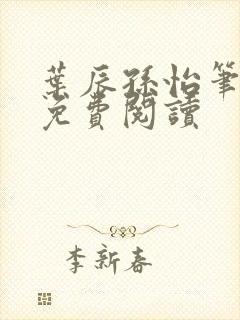 葉辰孫怡筆
免費閱讀
李新春